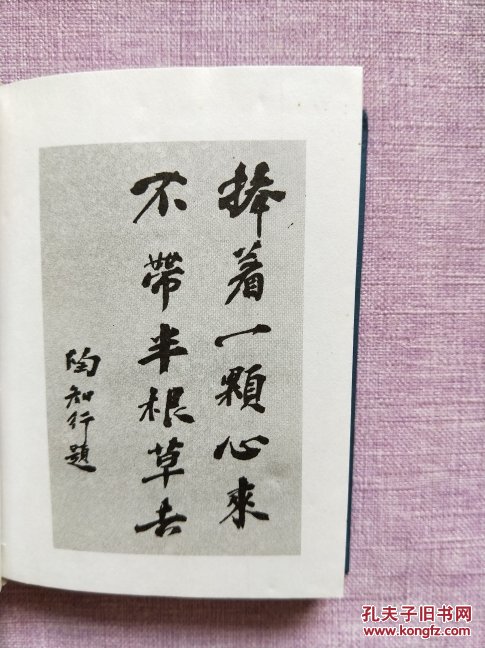 捧着一顆心來
不帶半根草去
陶知行題
孔夫子旧书网
www.kongfz.com